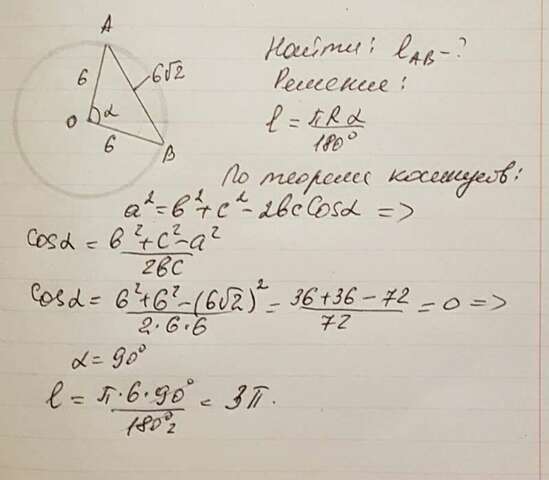 A
6
6√2
O
α
6
B
Найти: l_AB - ?
Решение:
l = πRα/180°
По теореме косинусов:
a² = b² + c² - 2bc cosα =>
cosα = (b² + c² - a²)/2bc
cosα = (6² + 6² - (6√2)²)/(2·6·6) = (36 + 36 - 72)/72 = 0 =>
α = 90°
l = (π·6·90°)/180°₂ = 3π.